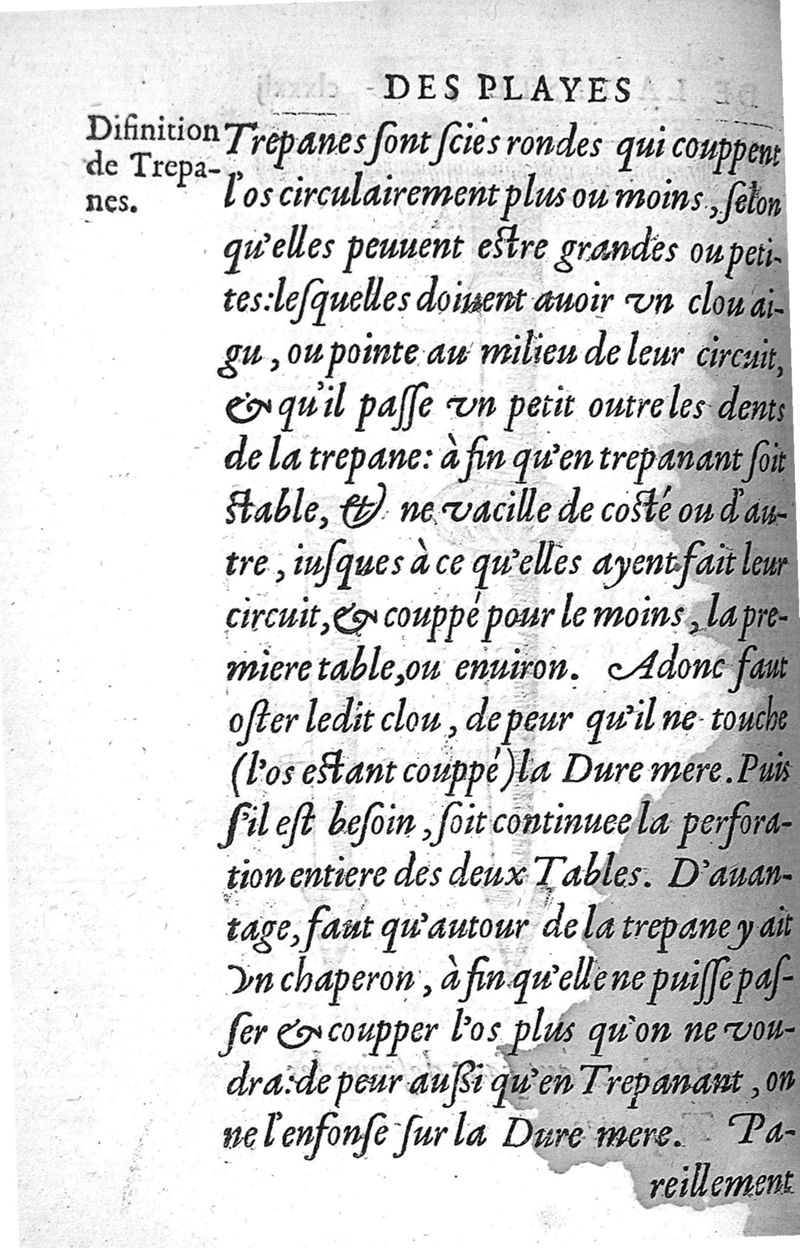 DES PLAYES
Difinition
de Trepa-
nes.
Trepanes ſont ſciés rondes qui couppent
l'os circulairement plus ou moins, ſelon
qu'elles peuuent eſtre grandes ou peti-
tes: leſquelles doiuent auoir vn clou ai-
gu, ou pointe au milieu de leur circuit,
& qu'il paſſe vn petit outre les dents
de la trepane: à fin qu'en trepanant ſoit
ſtable, & ne vacille de coſté ou d'au-
tre, iuſques à ce qu'elles ayent fait leur
circuit, & couppé pour le moins, la pre-
miere table, ou enuiron. Adonc faut
oſter ledit clou, de peur qu'il ne touche
(l'os eſtant couppé) la Dure mere. Puis
ſ'il eſt beſoin, ſoit continuee la perfora-
tion entiere des deux Tables. D'auan-
tage, faut qu'autour de la trepane y ait
vn chaperon, à fin qu'elle ne puiſſe paſ-
ſer & coupper l'os plus qu'on ne vou-
dra: de peur auſſi qu'en Trepanant, on
ne l'enfonſe ſur la Dure mere. Pa-
reillement